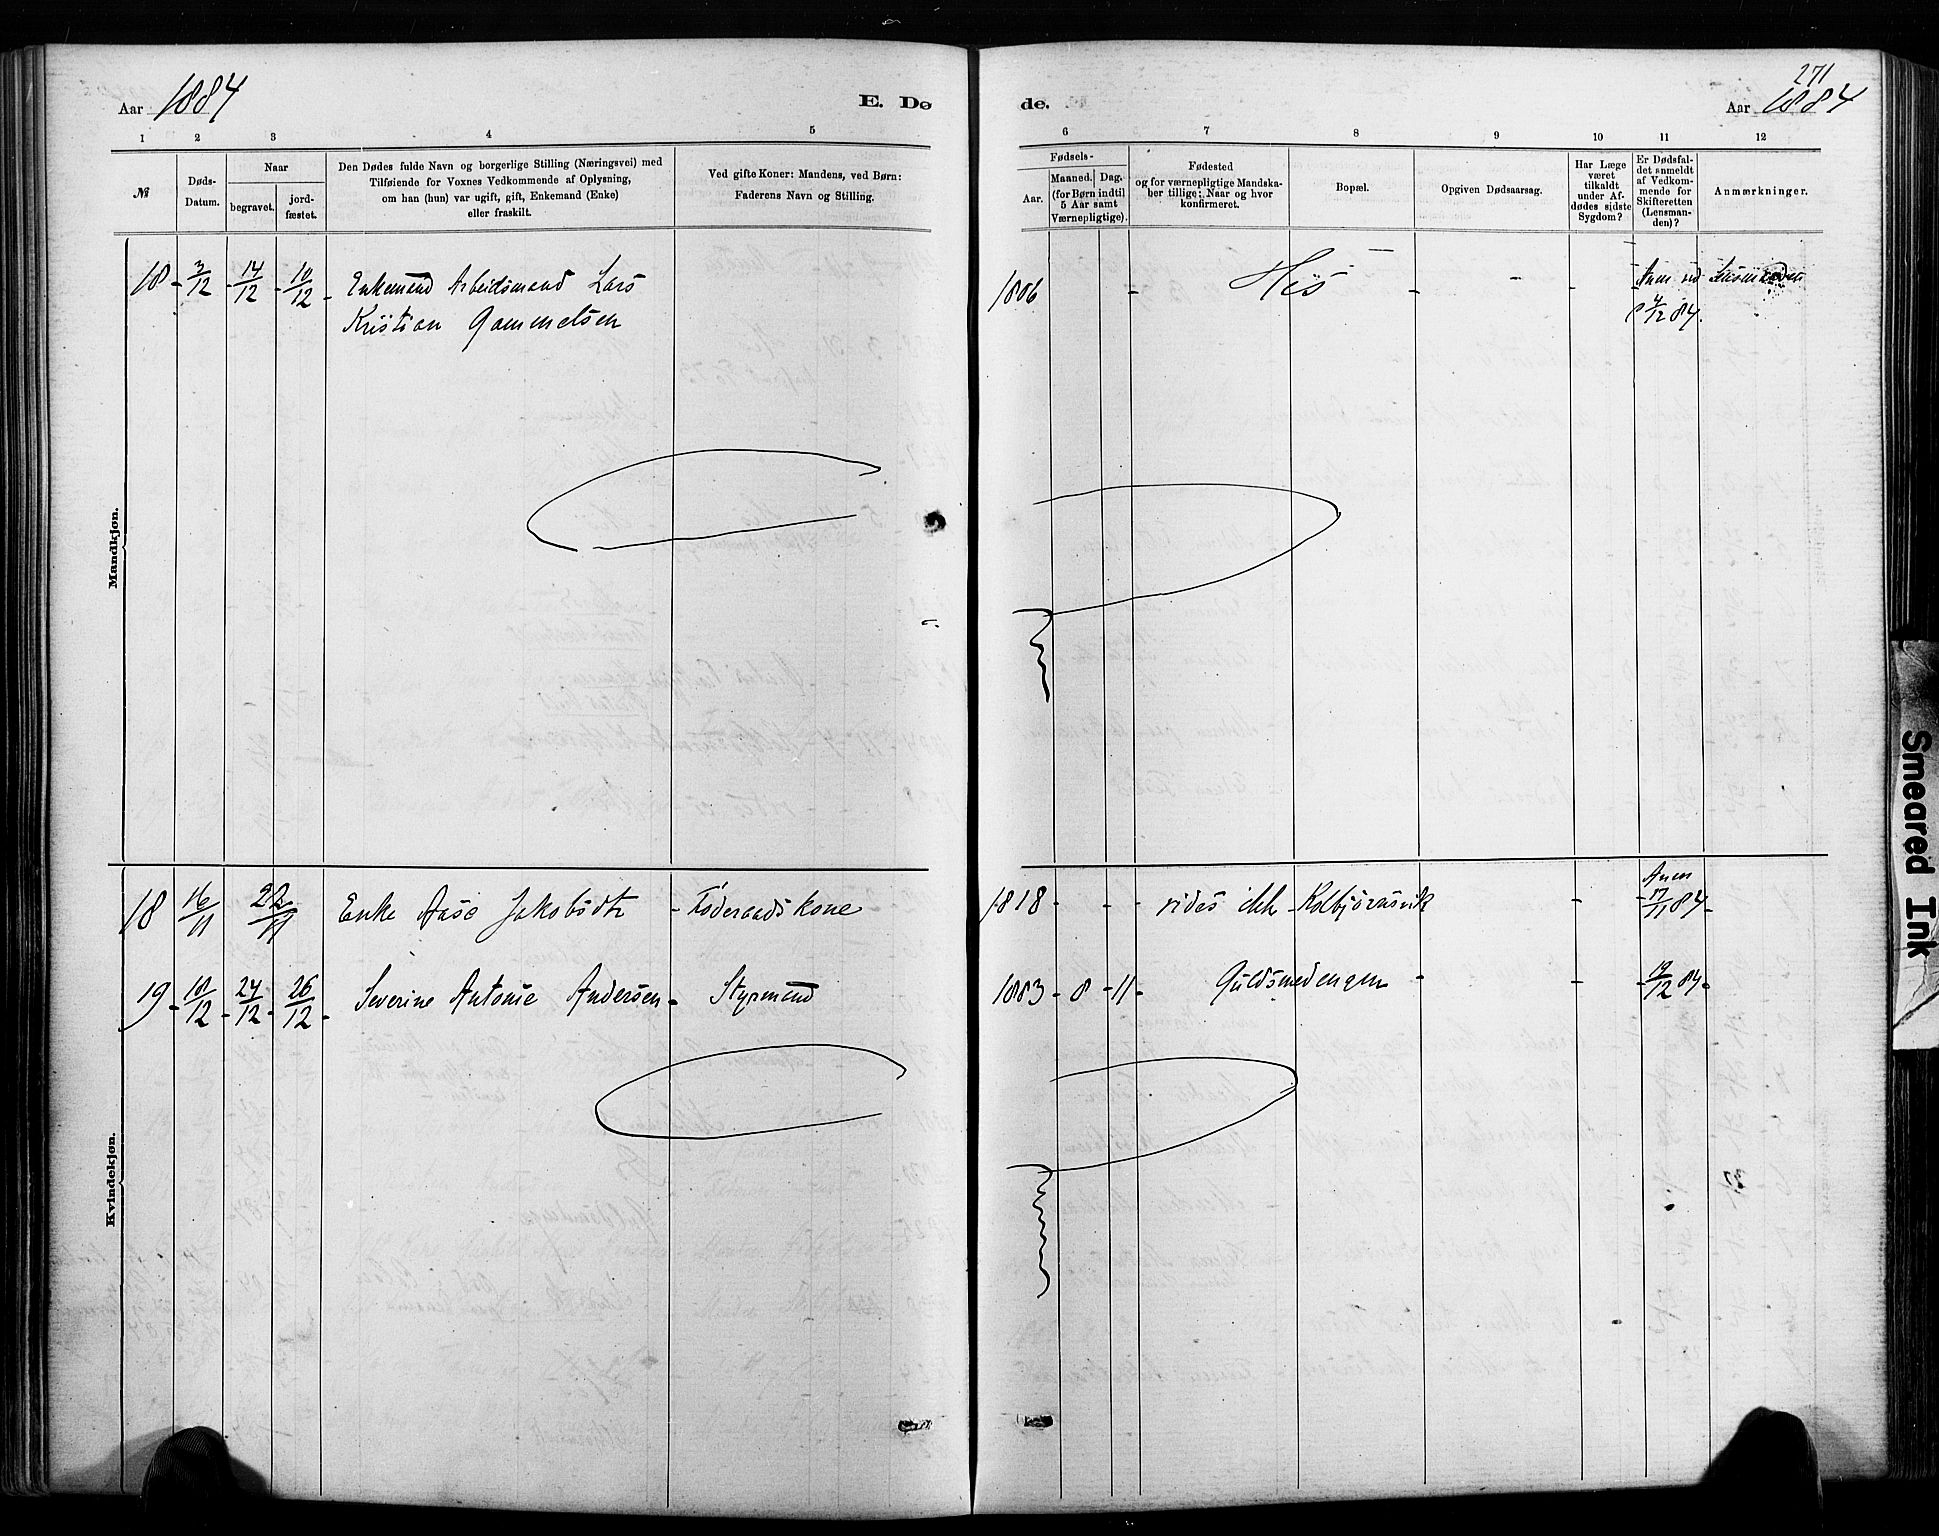 Aar 1884
E. Dø
1 2 3 4 5
№
Døds-
Datum.
Naar
begravet.
jord-
fæstet.
Den Dødes fulde Navn og borgerlige Stilling (Næringsvei) med
Tilføiende for Voxnes Vedkommende af Oplysning,
om han (hun) var ugift, gift, Enkemand (Enke)
eller fraskilt.
Ved gifte Koner: Mandens, ved Børn:
Faderens Navn og Stilling.
Mandkjøn.
18 - 3/12 - 14/12 - 10/12 - Enkemand Arbeidsmand Lars
Kristian Gammelsen
Kvindekjøn.
18 16/11 22/11 Enke Aase Jakobsdtr - Føderaadskone
19 - 10/12 - 24/12 - 26/12 - Severine Antonie Andersen - Styrmand
de.
271
Aar 1884
6 7 8 9 10 11 12
Fødsels-
Aar.
Maaned. Dag.
(for Børn indtil
5 Aar samt
Værnepligtige).
Fødested
og for værnepligtige Mandska-
ber tillige: Naar og hvor
konfirmeret.
Bopæl.
Opgiven Dødsaarsag.
Har Læge
været
tilkaldt
under Af-
dødes sidste
Sygdom?
Er Dødsfal-
det anmeldt
af Vedkom-
mende for
Skifteretten
(Lensman-
den)?
Anmærkninger.
1806 - His - - - - Anm ved
4/12 84.
1818 - - - vides ikke Kolbjørnsvik - - Anm
17/11 84 -
1883 - 8 - 11 - Guldsmedengen - - - 19/12 84 -
Smeared Ink